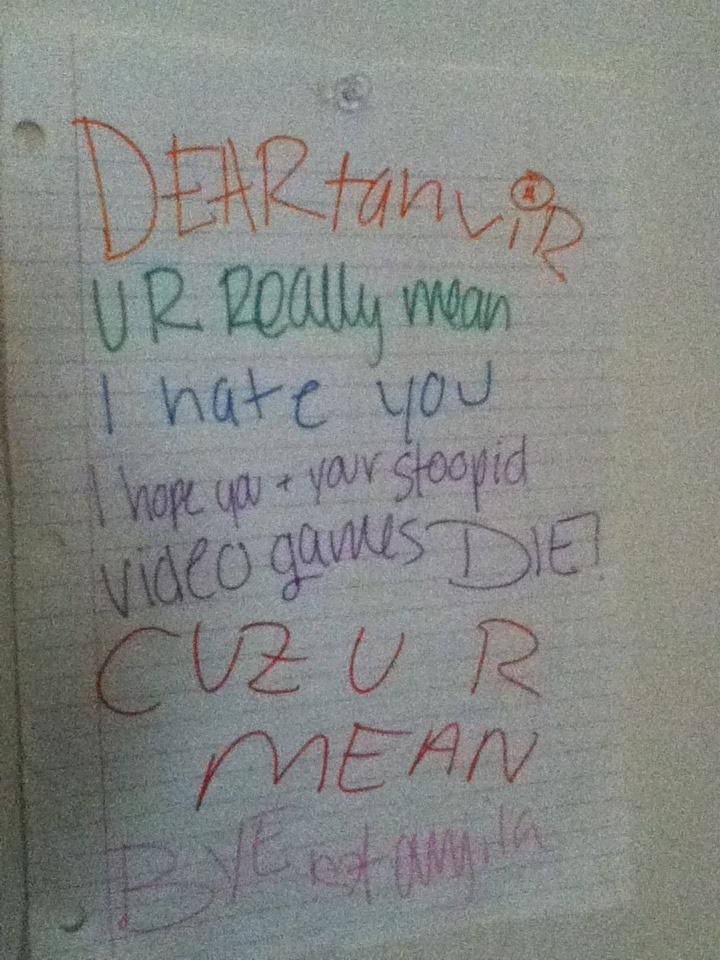 DEAR tanviR
UR REally mean
I hate you
I hope you + your stoopid
video games DIE!
CUZ U R
MEAN
BYE not